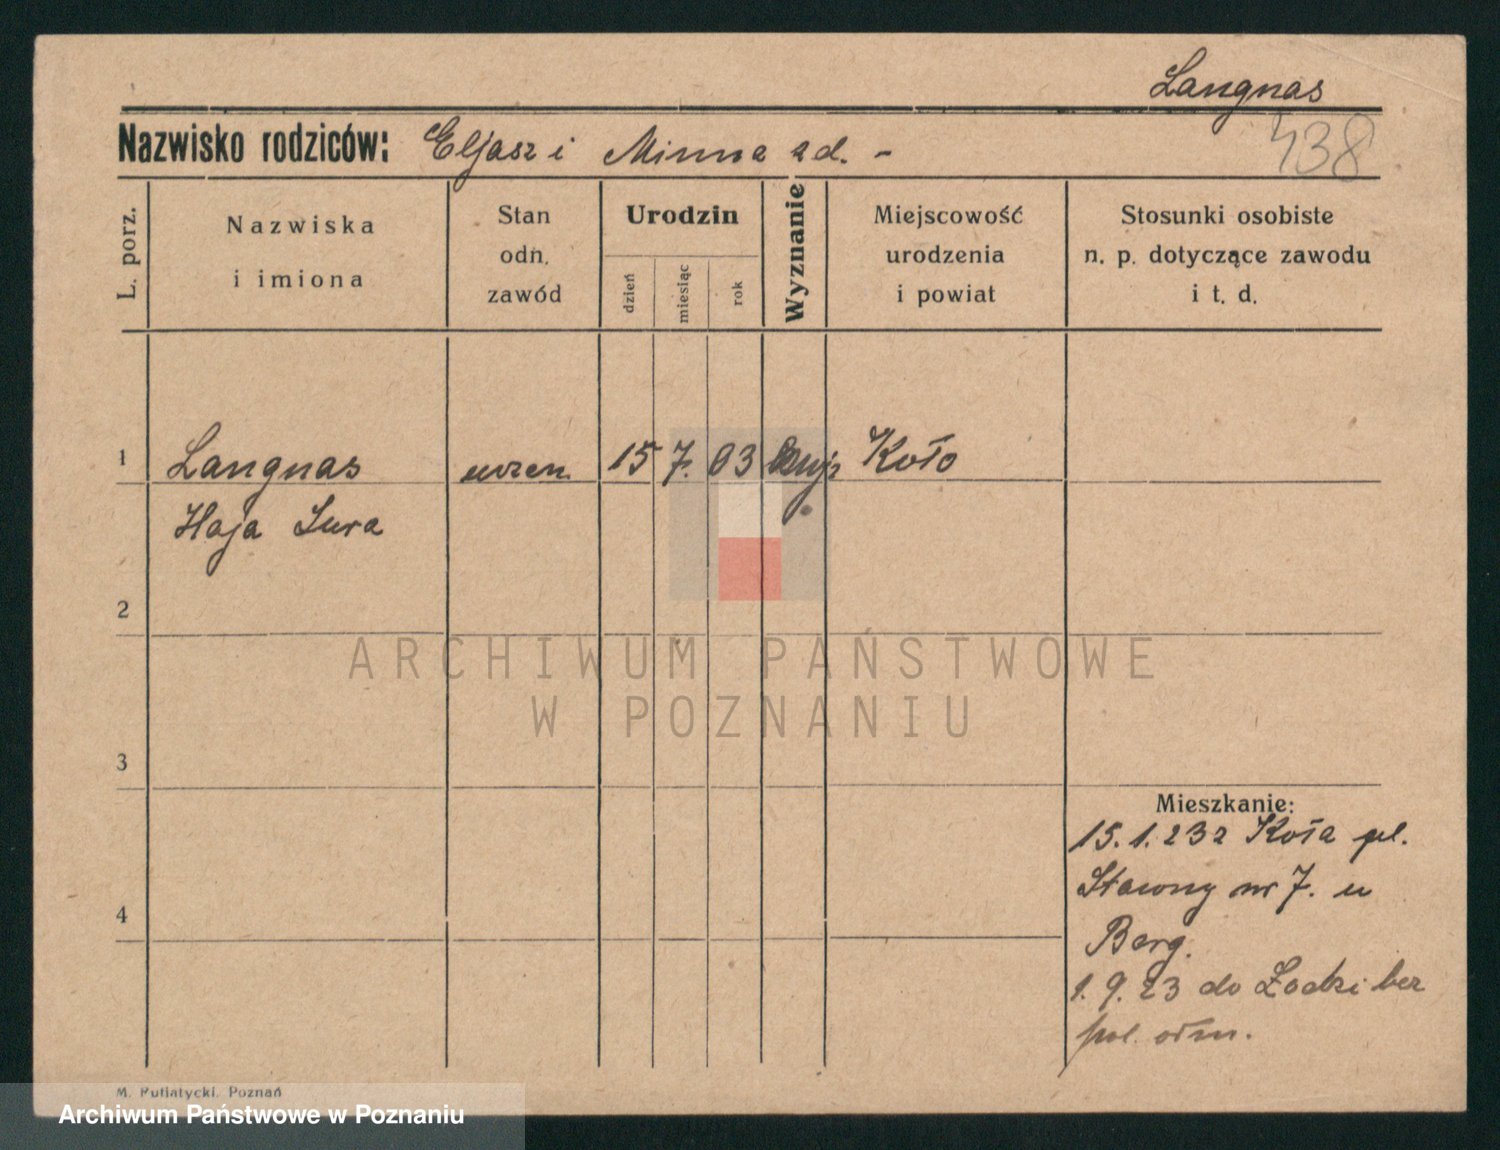 Langnas
438
Nazwisko rodziców: Eljasz i Minna zd. -
L. porz.
Nazwiska
i imiona
Stan
odn.
zawód
Urodzin
dzień
miesiąc
rok
Wyznanie
Miejscowość
urodzenia
i powiat
Stosunki osobiste
n. p. dotyczące zawodu
i t. d.
1 Langnas uczen. 15 7. 03 Koło
Haja Sura
2
3
4
Mieszkanie:
15.1.23 z Koła pl.
Stawny nr 7. u
Berg.
1.9.23 do Łodzi bez
pol. odm.
ARCHIWUM PAŃSTWOWE
W POZNANIU
M. Putiatycki. Poznań
Archiwum Państwowe w Poznaniu